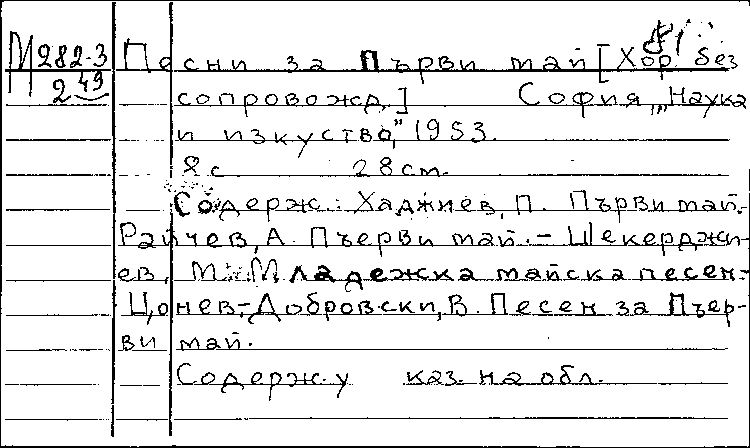 81
М282-3 Песни за Първи май [Хор без
249 сопровожд.] София, „Наука
и изкуство," 1953.
8 с 28 см.
Содерж.: Хаджиев, П. Първи май.-
Райчев, А. Пъерви май. - Шекерджи-
ев, М. Младежка майска песен.-
Цонев-Добровски, В. Песен за Пъер-
ви май.
Содерж. у каз. на обл.